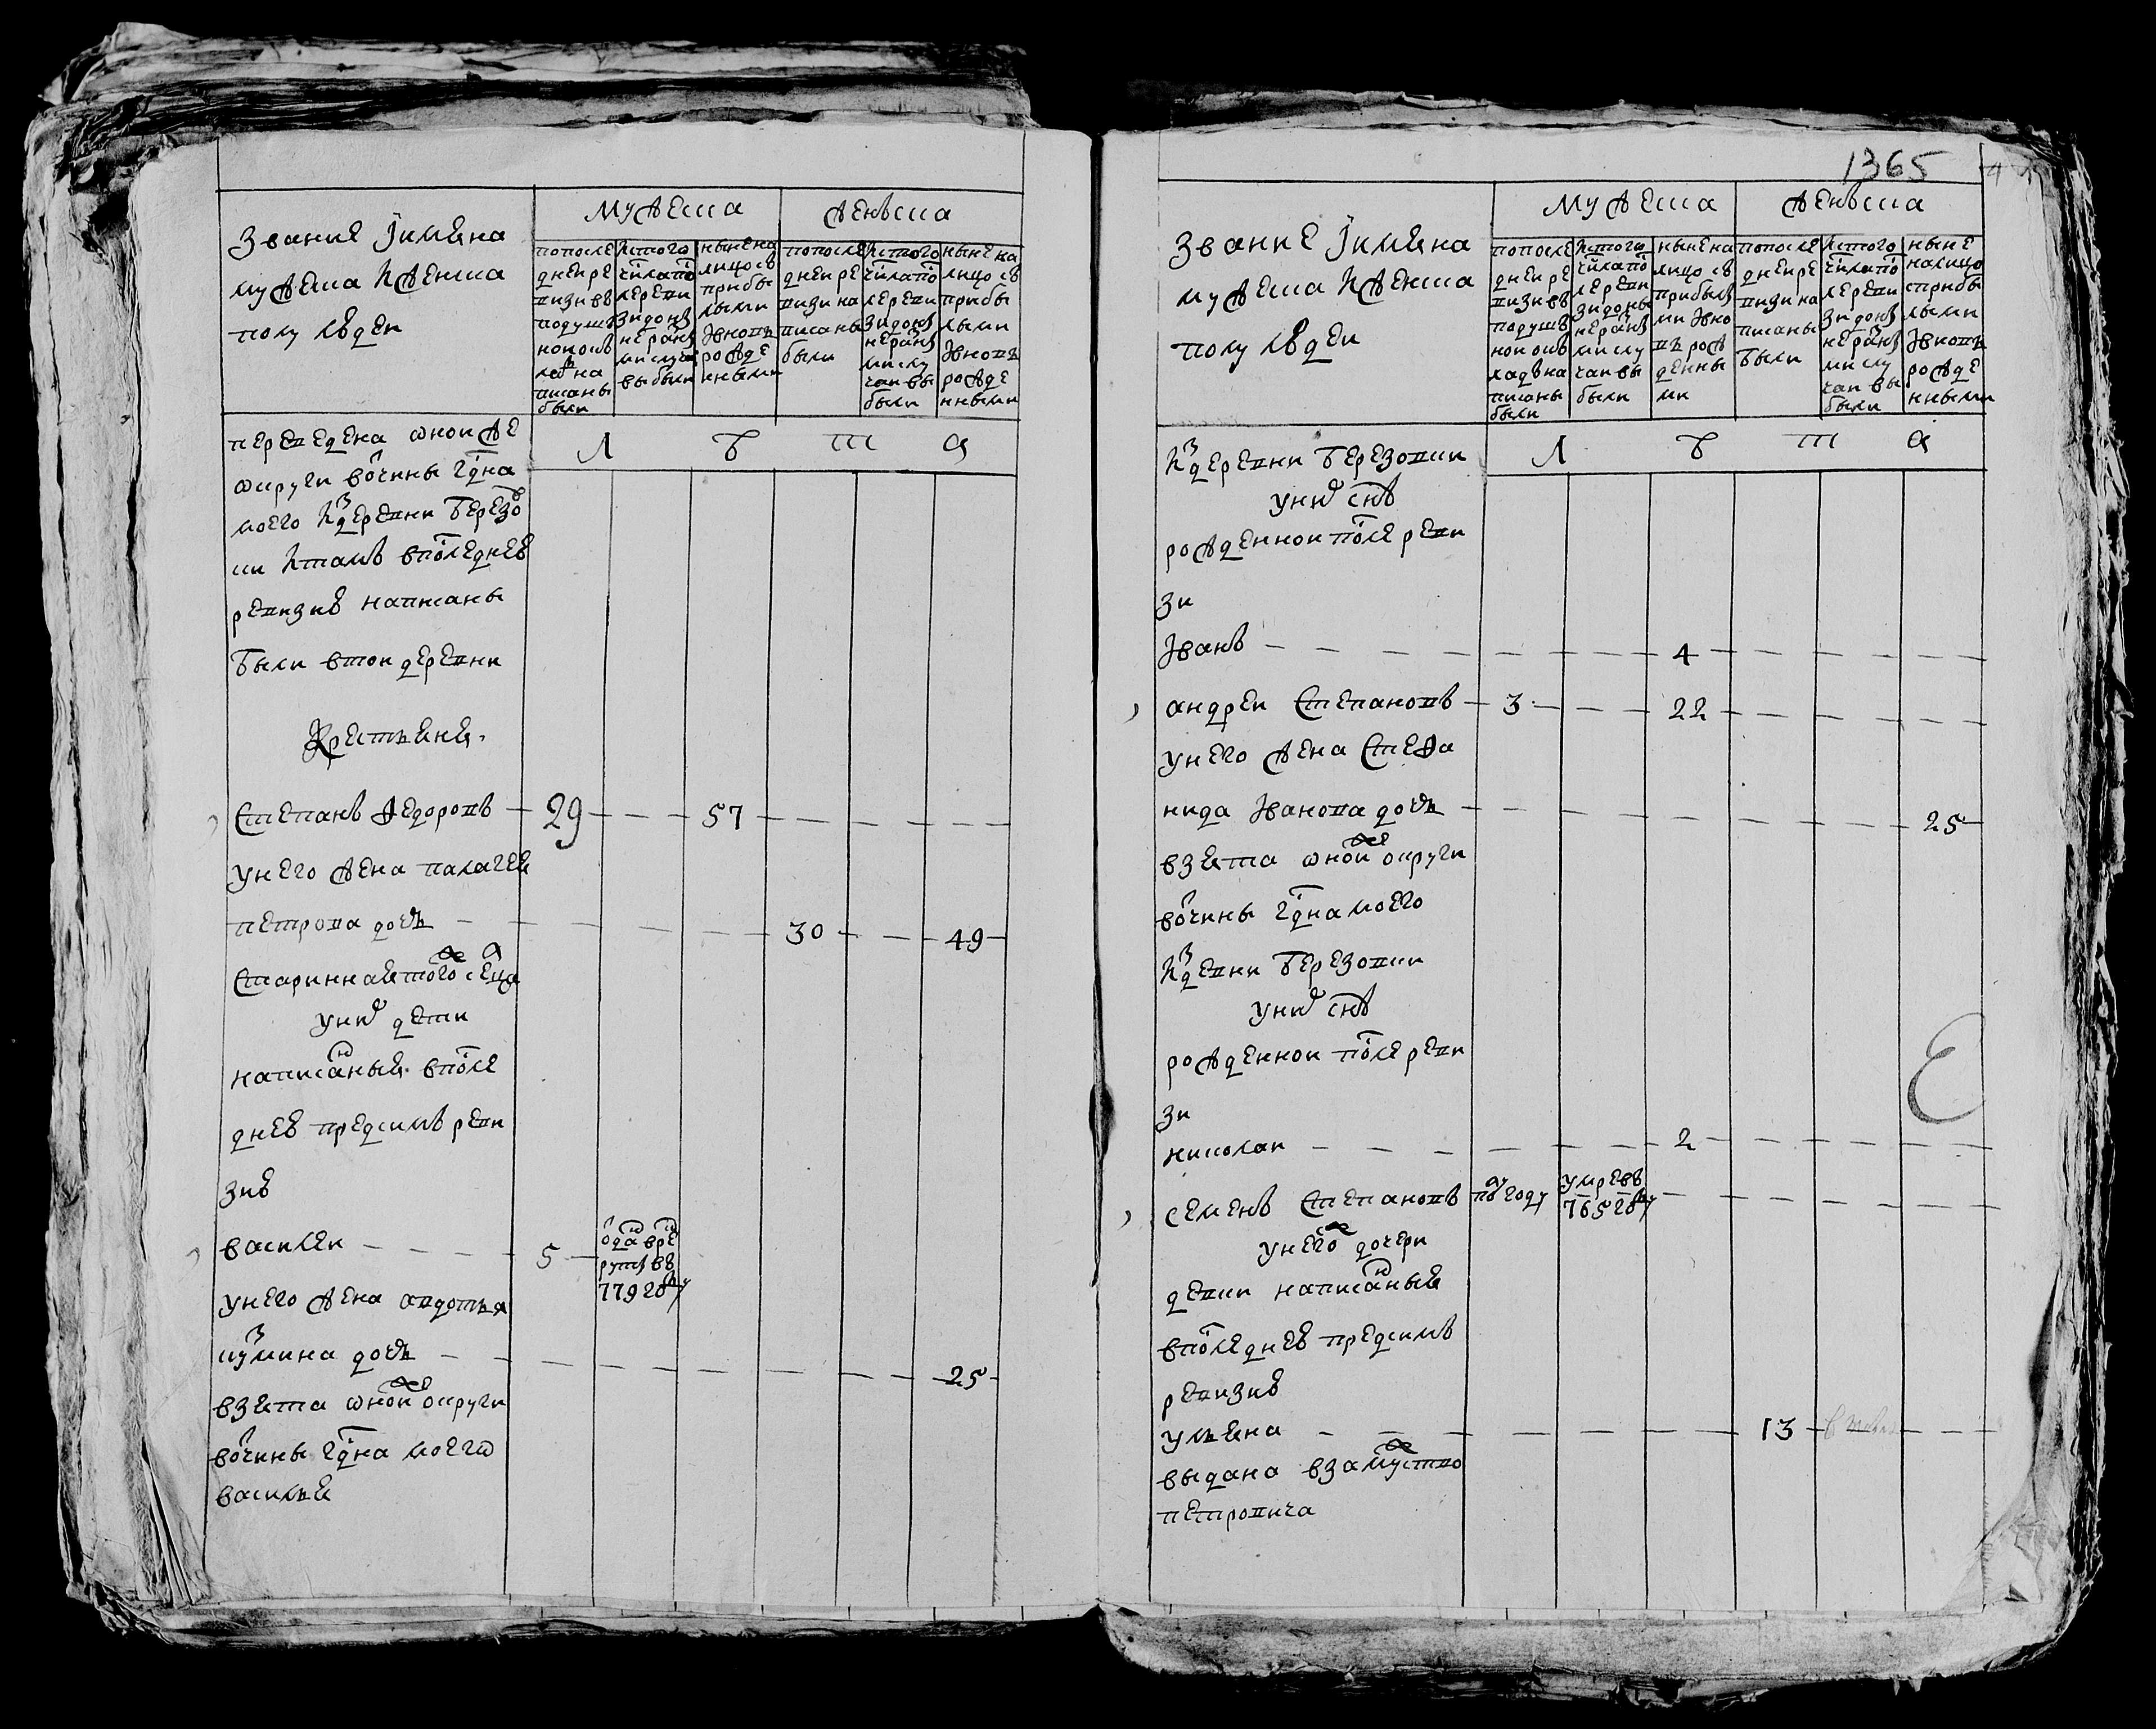 Звание и имена
мужеска и женска
полу людей
мужеска
женска
попосле
дней ре
визиивъ
подушъ
номокъ
ладъ на
писаны
были
исътого
числапо
слеревизи
зи до нъ
неразны
ми случаи
выбыли
ныне на
лицо съ
прибы
лыми
и вновь
рожде
нными
попосле
дней ре
визии на
писаны
были
исътого
числапо
слереви
зи до нъ
неразнъ
ми слу
чаи вы
были
ныне на
лицо съ
прибы
лыми
и вновь
рожде
нными
переведена оной же
округи вочины гдна
моего из деревни Березо
вки и тамъ впоследней
ревизии написаны
были в той деревни
л е т а
Крестьяня.
Степанъ Федоровъ 29 57
у него жена палагея
петрова дочь 30 49
Стариннаятого же селца
уних дети
написанныя впосле
дней предсимъ реви
зии
василей 5 оданъ врек
рутыъ въ
779 году
у него жена авдотья
кузмина дочь 25
взята оной же округи
вочины гдна моего
василья
1365
Звание и имена
мужеска и женска
полу людей
мужеска
женска
попосле
дней ре
визиивъ
подушъ
номокъ
ладъ на
писаны
были
исътого
числапо
слереви
зи до нъ
неразны
ми слу
чаи вы
были
ныне на
лицо съ
прибылы
ми и вно
въ рож
денны
ми
попосле
дней ре
визии на
писаны
были
исътого
числапо
слереви
зи до нъ
неразнъ
ми слу
чаи вы
были
ныне
налицо
сприбы
лыми
и вновь
рожде
нными
из деревни Березовки
л е т а
уних снъ
рожденной после реви
зи
Иванъ 4
андрей Степановъ 3 22
у него жена Стефа
нида Иванова дочь 25
взята оной же округи
вочины гдна моего
из девни Березовки
уних снъ
рожденной после реви
зи
николай 2
семенъ Степановъ по году умре въ
765 году
у него же дочери
девки написанныя
впоследней предсимъ
ревизии
ульяна 13
выдана взамужство
петровича